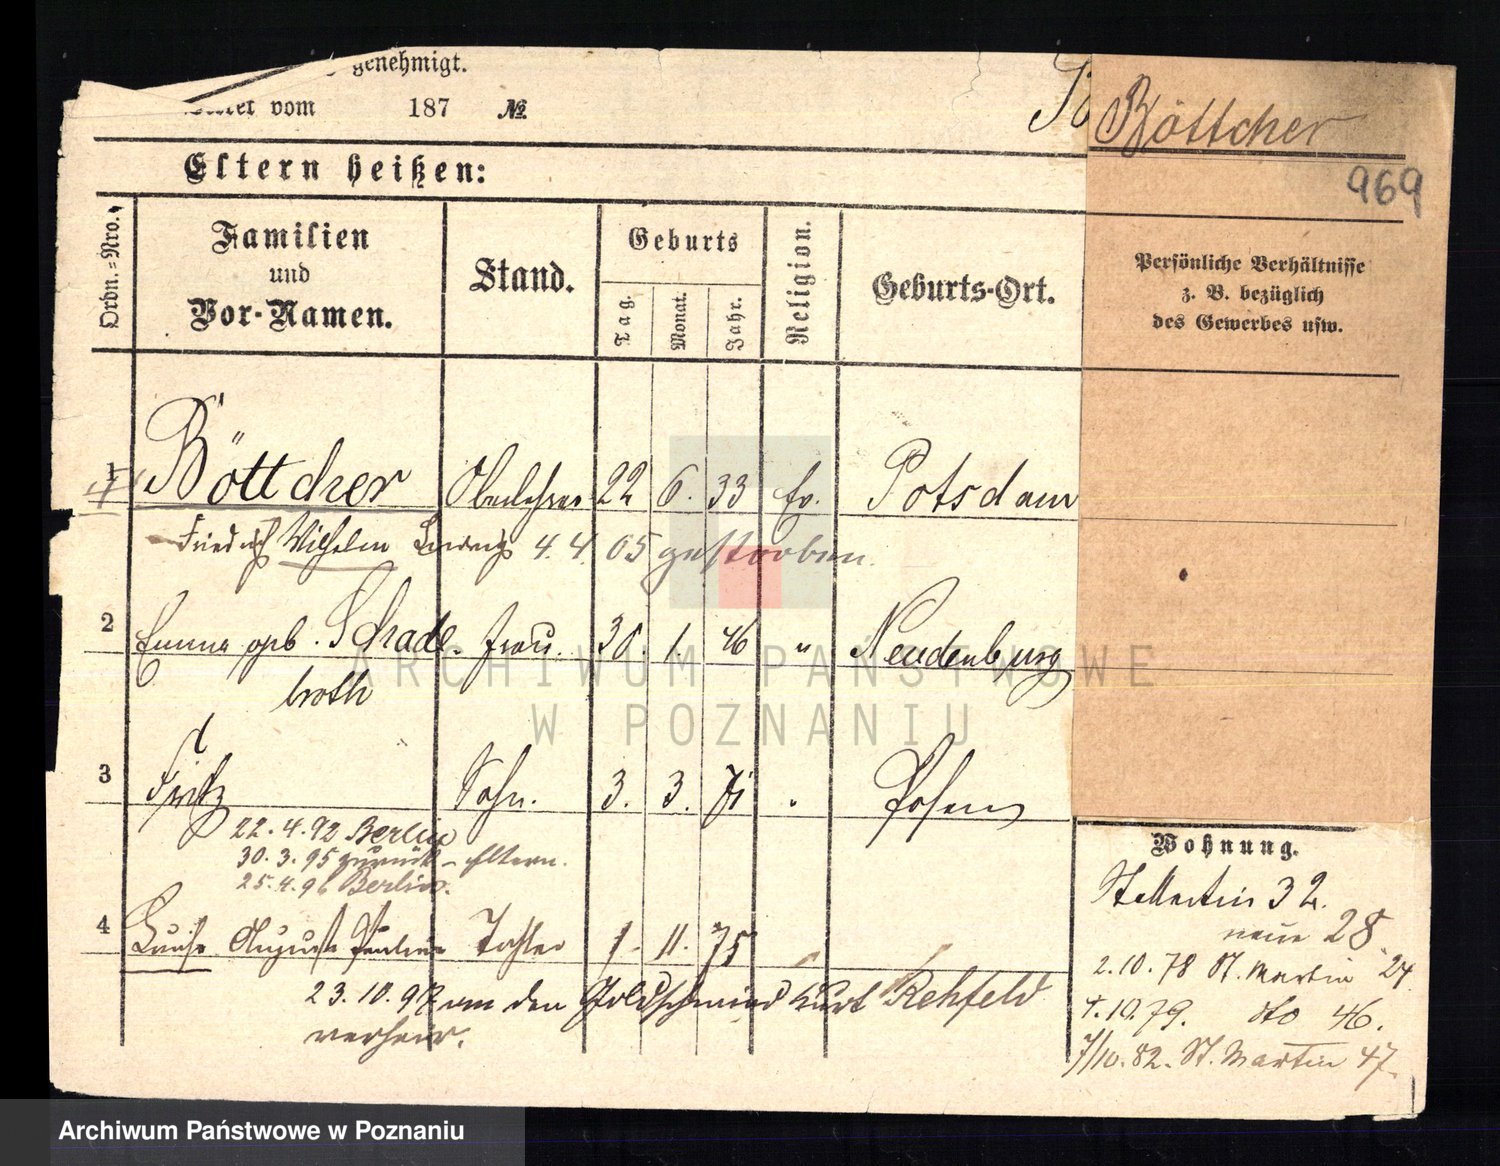 genehmigt.
vom 187 №
Böttcher
969
Eltern heißen:
Ordn.=Nro.
Familien
und
Vor-Namen.
Stand.
Geburts
Tag.
Monat.
Jahr.
Religion.
Geburts-Ort.
Persönliche Verhältnisse
z. B. bezüglich
des Gewerbes usw.
1 Böttcher Oberlehrer 22 6. 33 Ev. Potsdam
Friedrich Wilhelm Ludwig 4. 4. 05 gestorben.
2 Emma geb. Schade- Frau. 30. 1. 46 " Neudenburg
broth
3 Fritz Sohn. 3. 3. 71 " Posen
22. 4. 92 Berlin
30. 3. 95 zurück - Eltern.
25. 4. 96 Berlin.
4 Luise Auguste Pauline Tochter 1. 11. 75 "
23. 10. 97 an den Goldschmied Kurt Rehfeld
verheir.
Wohnung.
St Martin 32.
neue 28.
2. 10. 78 St. Martin 24
4. 10. 79. dto 46.
7/10. 82. St. Martin 47.
ARCHIWUM PAŃSTWOWE
W POZNANIU
Archiwum Państwowe w Poznaniu